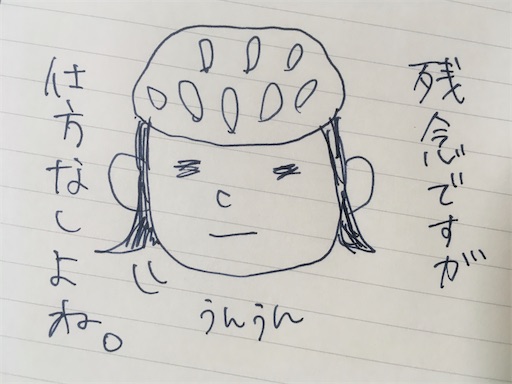 残念ですが
仕方なしよね。
うんうん